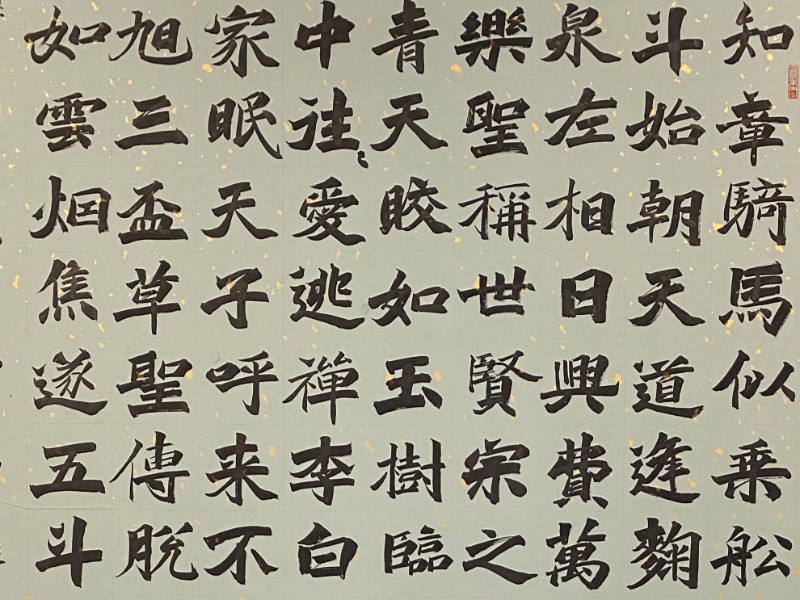 知章騎馬似乗舩
斗始朝天道逢麴
泉左相日興費萬
樂聖稱世賢宗之
青天皎如玉樹臨
中往愛逃禪李白
家眠天子呼来不
旭三盃草聖傳脫
如雲烟焦遂五斗